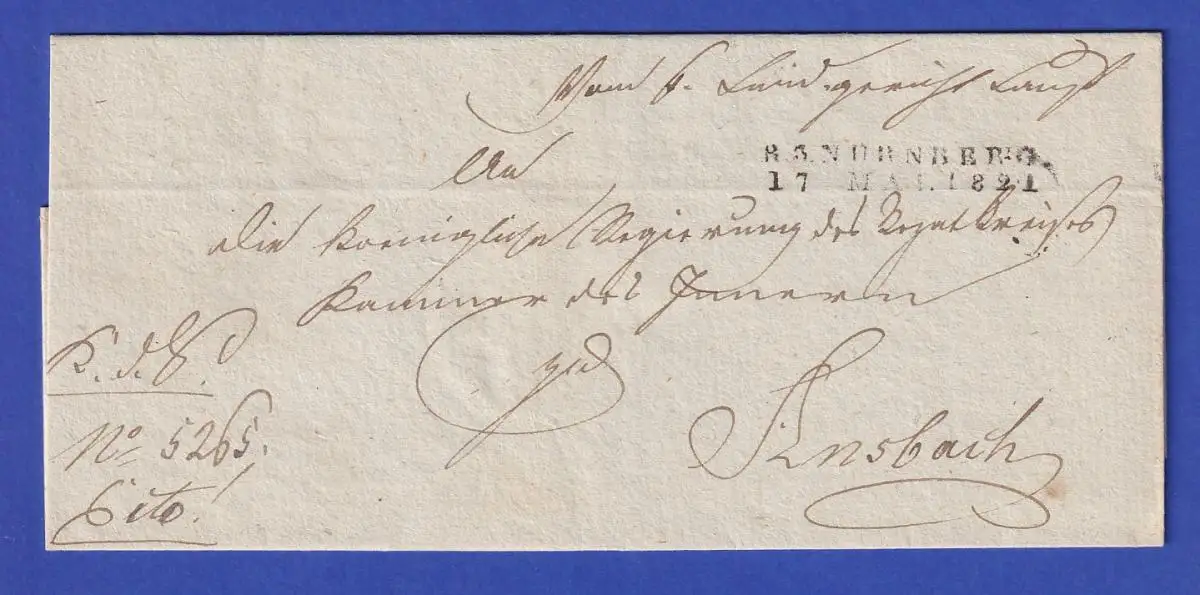 Vom k. Landgericht Lauf
An
R.3.NÜRNBERG.
17 MAI.1821
die Koenigliche Regierung des Rezatkreises
Kammer des Innern
zu
K. d. S.
Ansbach
No 5265.
Cito!